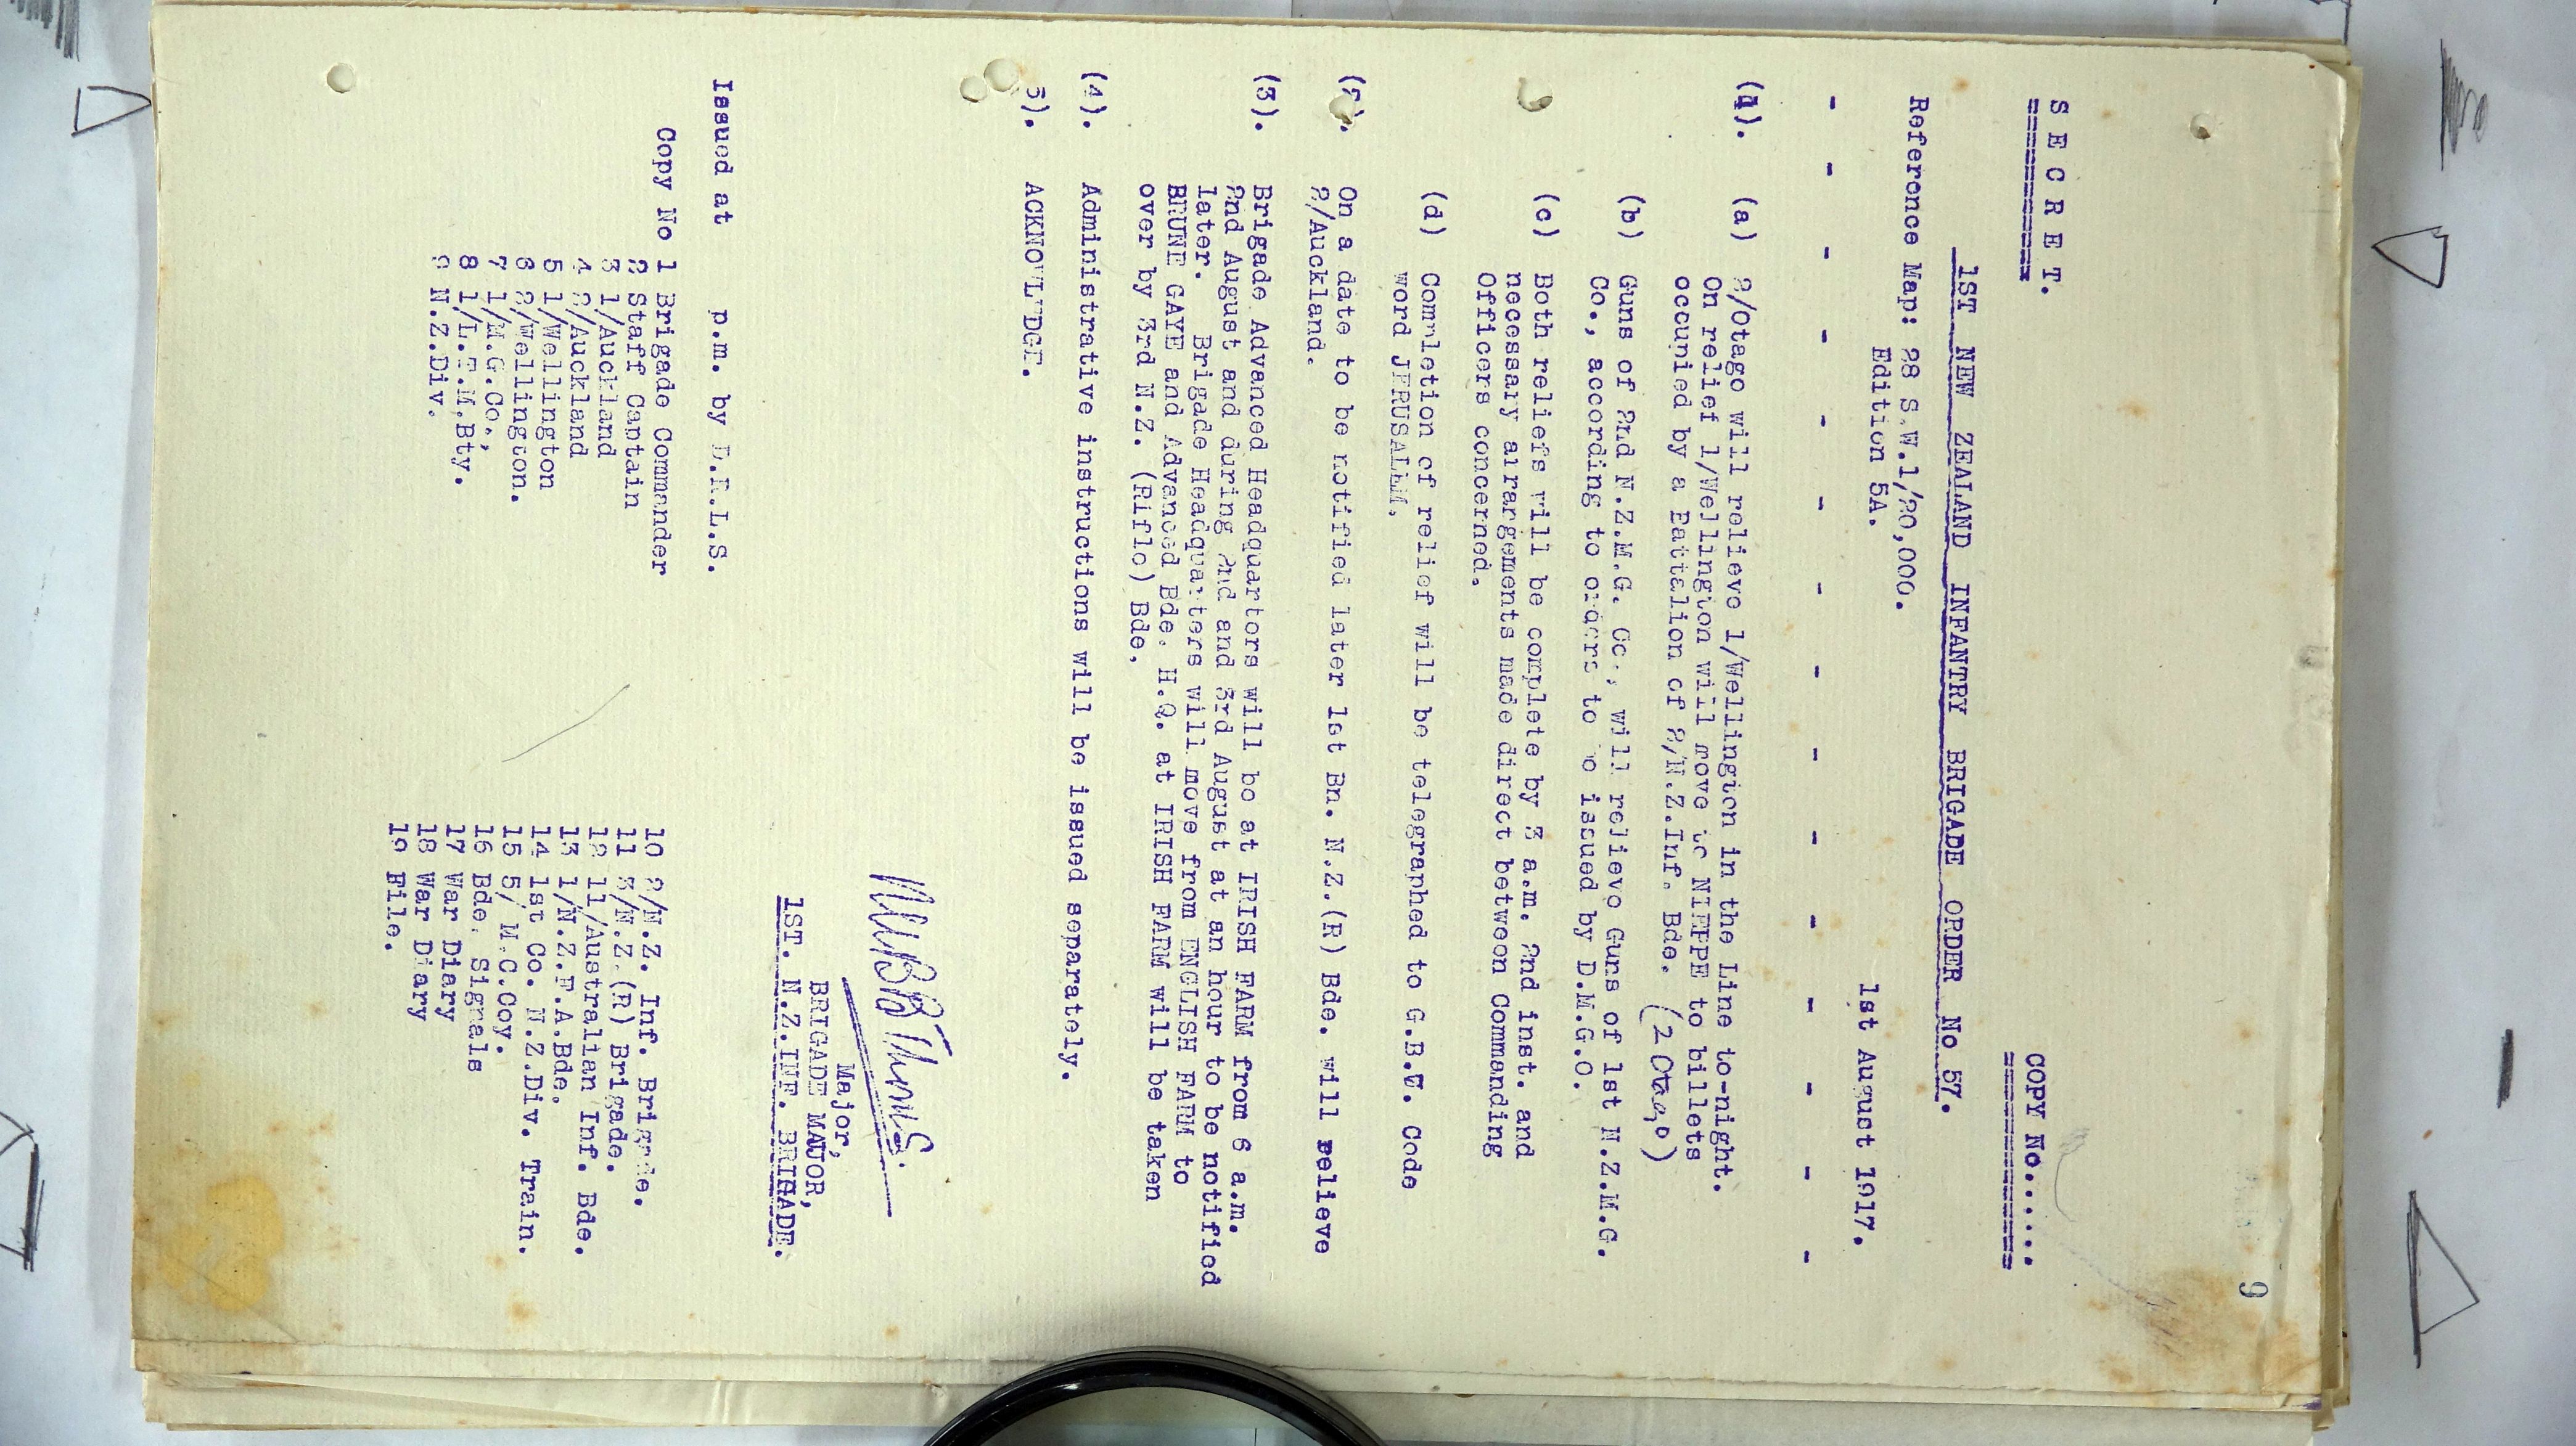 9
S E C R E T.
COPY No.......
1ST NEW ZEALAND INFANTRY BRIGADE ORDER No 57.
Reference Map: 28 S.W.1/20,000.
Edition 5A.
1st August 1917.
(1). (a) 2/Otago will relieve 1/Wellington in the Line to-night.
On relief 1/Wellington will move to NIEPPE to billets
occupied by a Battalion of 2/N.Z.Inf. Bde. (2 Otago)
(b) Guns of 2nd N.Z.M.G. Co., will relieve Guns of 1st N.Z.M.G.
Co., according to orders to be issued by D.M.G.O.
(c) Both reliefs will be complete by 3 a.m. 2nd inst. and
necessary arrargements made direct between Commanding
Officers concerned.
(d) Completion of relief will be telegraphed to G.B.W. Code
word JERUSALEM.
(2). On a date to be notified later 1st Bn. N.Z.(R) Bde. will relieve
2/Auckland.
(3). Brigade Advanced Headquarters will be at IRISH FARM from 6 a.m.
2nd August and during 2nd and 3rd August at an hour to be notified
later. Brigade Headquarters will move from ENGLISH FARM to
BRUNE GAYE and Advanced Bde. H.Q. at IRISH FARM will be taken
over by 3rd N.Z. (Rifle) Bde.
(4). Administrative instructions will be issued separately.
5). ACKNOWLEDGE.
Major,
BRIGADE MAJOR,
1ST. N.Z.INF. BRIGADE.
Issued at p.m. by D.R.L.S.
Copy No 1 Brigade Commander
2 Staff Captain
3 1/Auckland
4 2/Auckland
5 1/Wellington
6 2/Wellington.
7 1/M.G.Co.,
8 1/L.T.M.Bty.
9 N.Z.Div.
10 2/N.Z. Inf. Brigade.
11 3/N.Z.(R) Brigade.
12 11/Australian Inf. Bde.
13 1/N.Z.F.A.Bde.
14 1st Co. N.Z.Div. Train.
15 5/ M.G.Coy.
16 Bde. Signals
17 War Diary
18 War Diary
19 File.